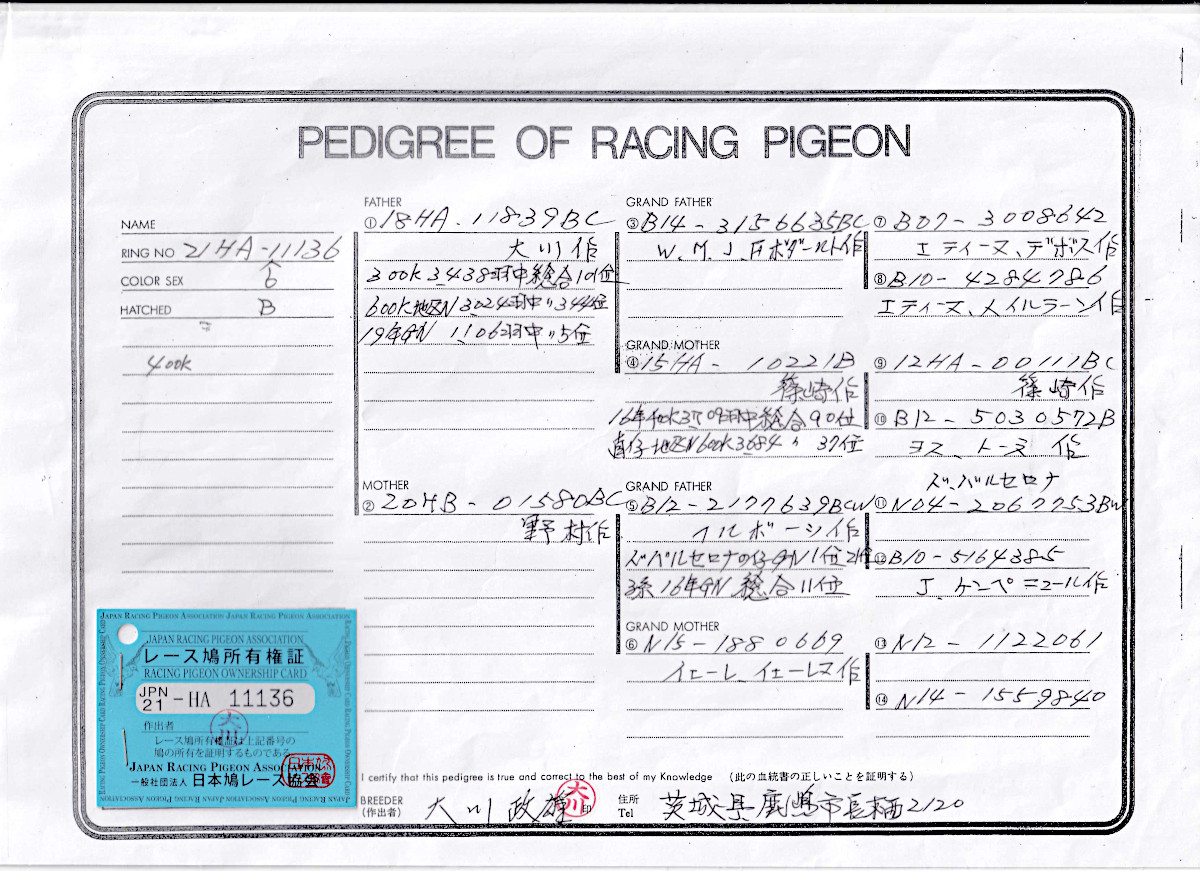 PEDIGREE OF RACING PIGEON
NAME
RING NO 21HA-11136
COLOR SEX 6
HATCHED B
400K
FATHER
① 18HA-11839BC
大川作
300K 3438羽中総合101位
600K地区N 3024羽中〃344位
19年GN 1106羽中〃5位
MOTHER
② 20HB-01580BC
野村作
GRAND FATHER
③ B14-3156635BC
W.M.J.
作
GRAND MOTHER
④ 15HA-10221B
篠崎作
16年400K3509羽中総合90位
直仔地区N600K3684〃37位
GRAND FATHER
⑤ B12-2177639BCW
フルボーシ作
ズバルセロナの仔GN1位21位
3孫16年GN総合11位
GRAND MOTHER
⑥ N15-1880669
イェーレ、イェーレヌ作
⑦ B07-3008642
エティーヌ、デボス作
⑧ B10-4284786
エティーヌ、メイルラーン作
⑨ 12HA-00111BC
篠崎作
⑩ B12-5030572B
ヨス、トーヌ作
ズ、バルセロナ
⑪ N04-2067753BW
⑫ B10-5164385
J.ケンペニュール作
⑬ N12-1122061
⑭ N14-1559840
JAPAN RACING PIGEON ASSOCIATION JAPAN RACING PIGEON ASSOCIATION
JAPAN RACING PIGEON ASSOCIATION
レース鳩所有権証
RACING PIGEON OWNERSHIP CARD
JPN 21-HA 11136
作出者
大川
レース鳩所有権証は上記番号の
鳩の所有を証明するものである
JAPAN RACING PIGEON ASSOCIATION
一般社団法人 日本鳩レース協会
I certify that this pedigree is true and correct to the best of my Knowledge (此の血統書の正しいことを証明する)
BREEDER (作出者) 大川政雄 大川 印
住所 Tel 茨城県鹿嶋市長栖2120